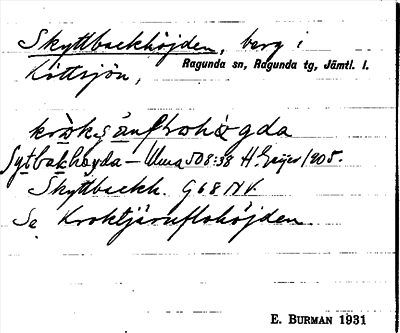 Skyttbackhöjden, berg i
Köttsjön, Ragunda sn, Ragunda tg, Jämtl. l.
Sytbakhøyda – Uma 508:38 H. Geijer 1905.
Skyttbackh. G68 NV.
Se Kroktjärnflohöjden
E. BURMAN 1931